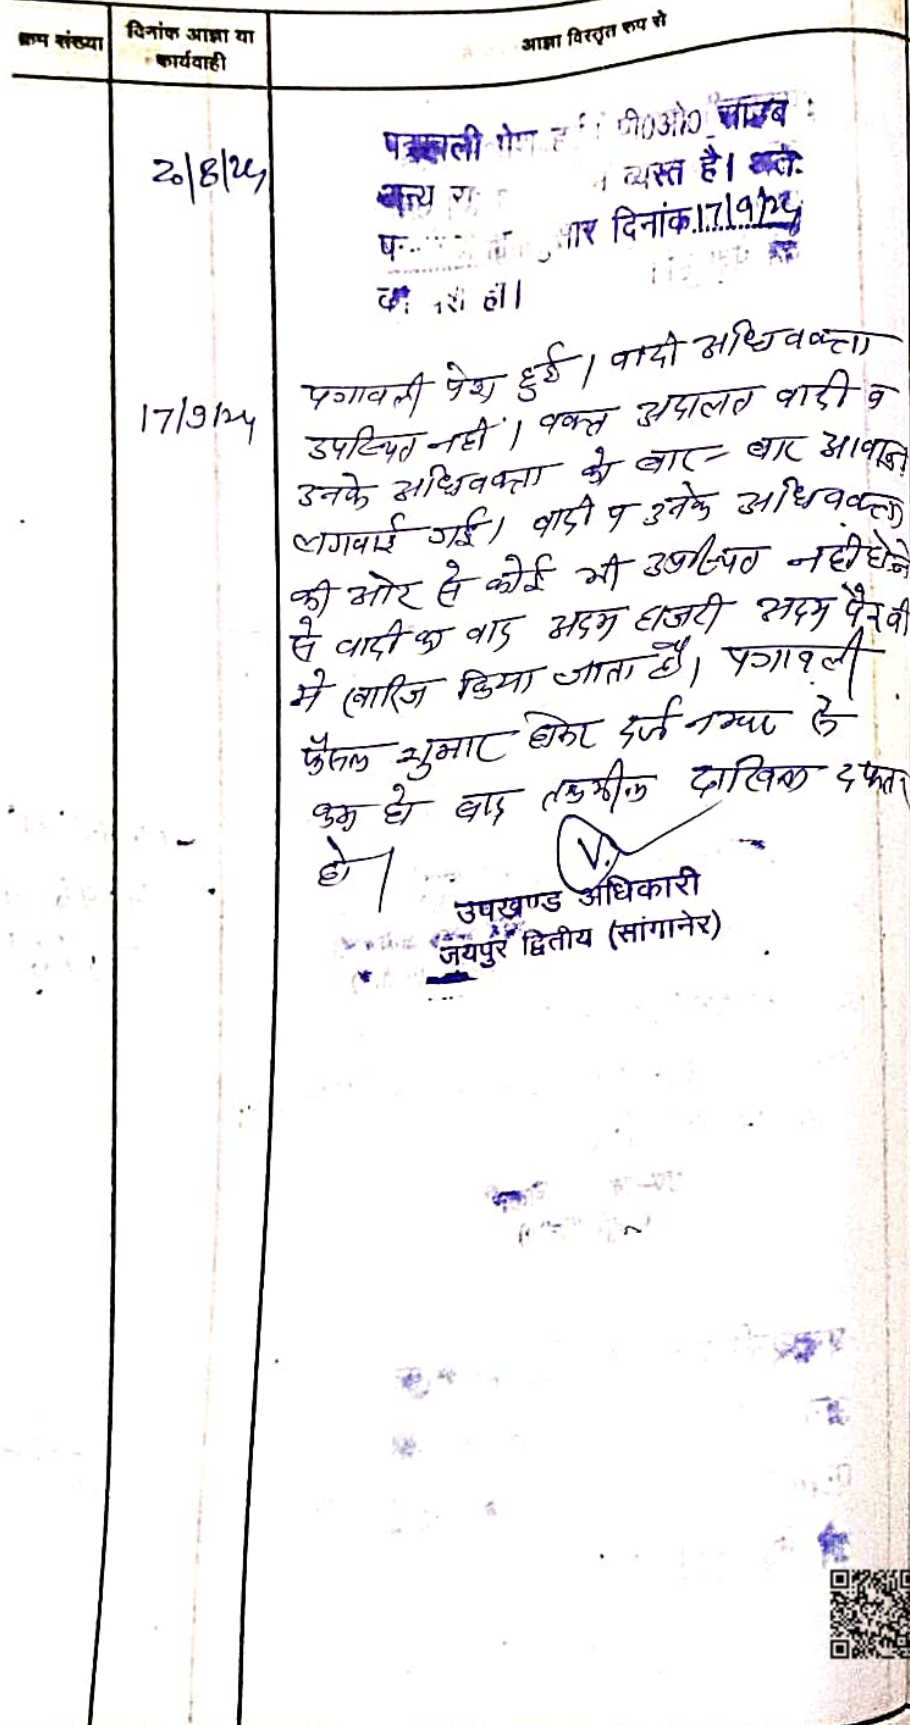 क्रम संख्या
दिनांक आज्ञा या
कार्यवाही
आज्ञा विस्तृत रूप से
20/8/24
पत्रावली पेश पी0ओ0 साहब
अन्य व्यस्त है। अतः
दिनांक 17/9/24
हो।
17/9/24
पत्रावली पेश हुई। वादी अधिवक्ता
उपस्थित नहीं। वक्त अदालत वादी व
उनके अधिवक्ता को बार-बार आवाज
लगवाई गई। वादी व उनके अधिवक्ता
की ओर से कोई भी उपस्थित नहीं होने
से वादी का वाद अदम हाजरी अदम पैरवी
में खारिज किया जाता है। पत्रावली
फैसल शुमार होकर दर्ज नम्बर से
कम हो बाद तकमील दाखिल दफ्तर
हो।
उपखण्ड अधिकारी
जयपुर द्वितीय (सांगानेर)